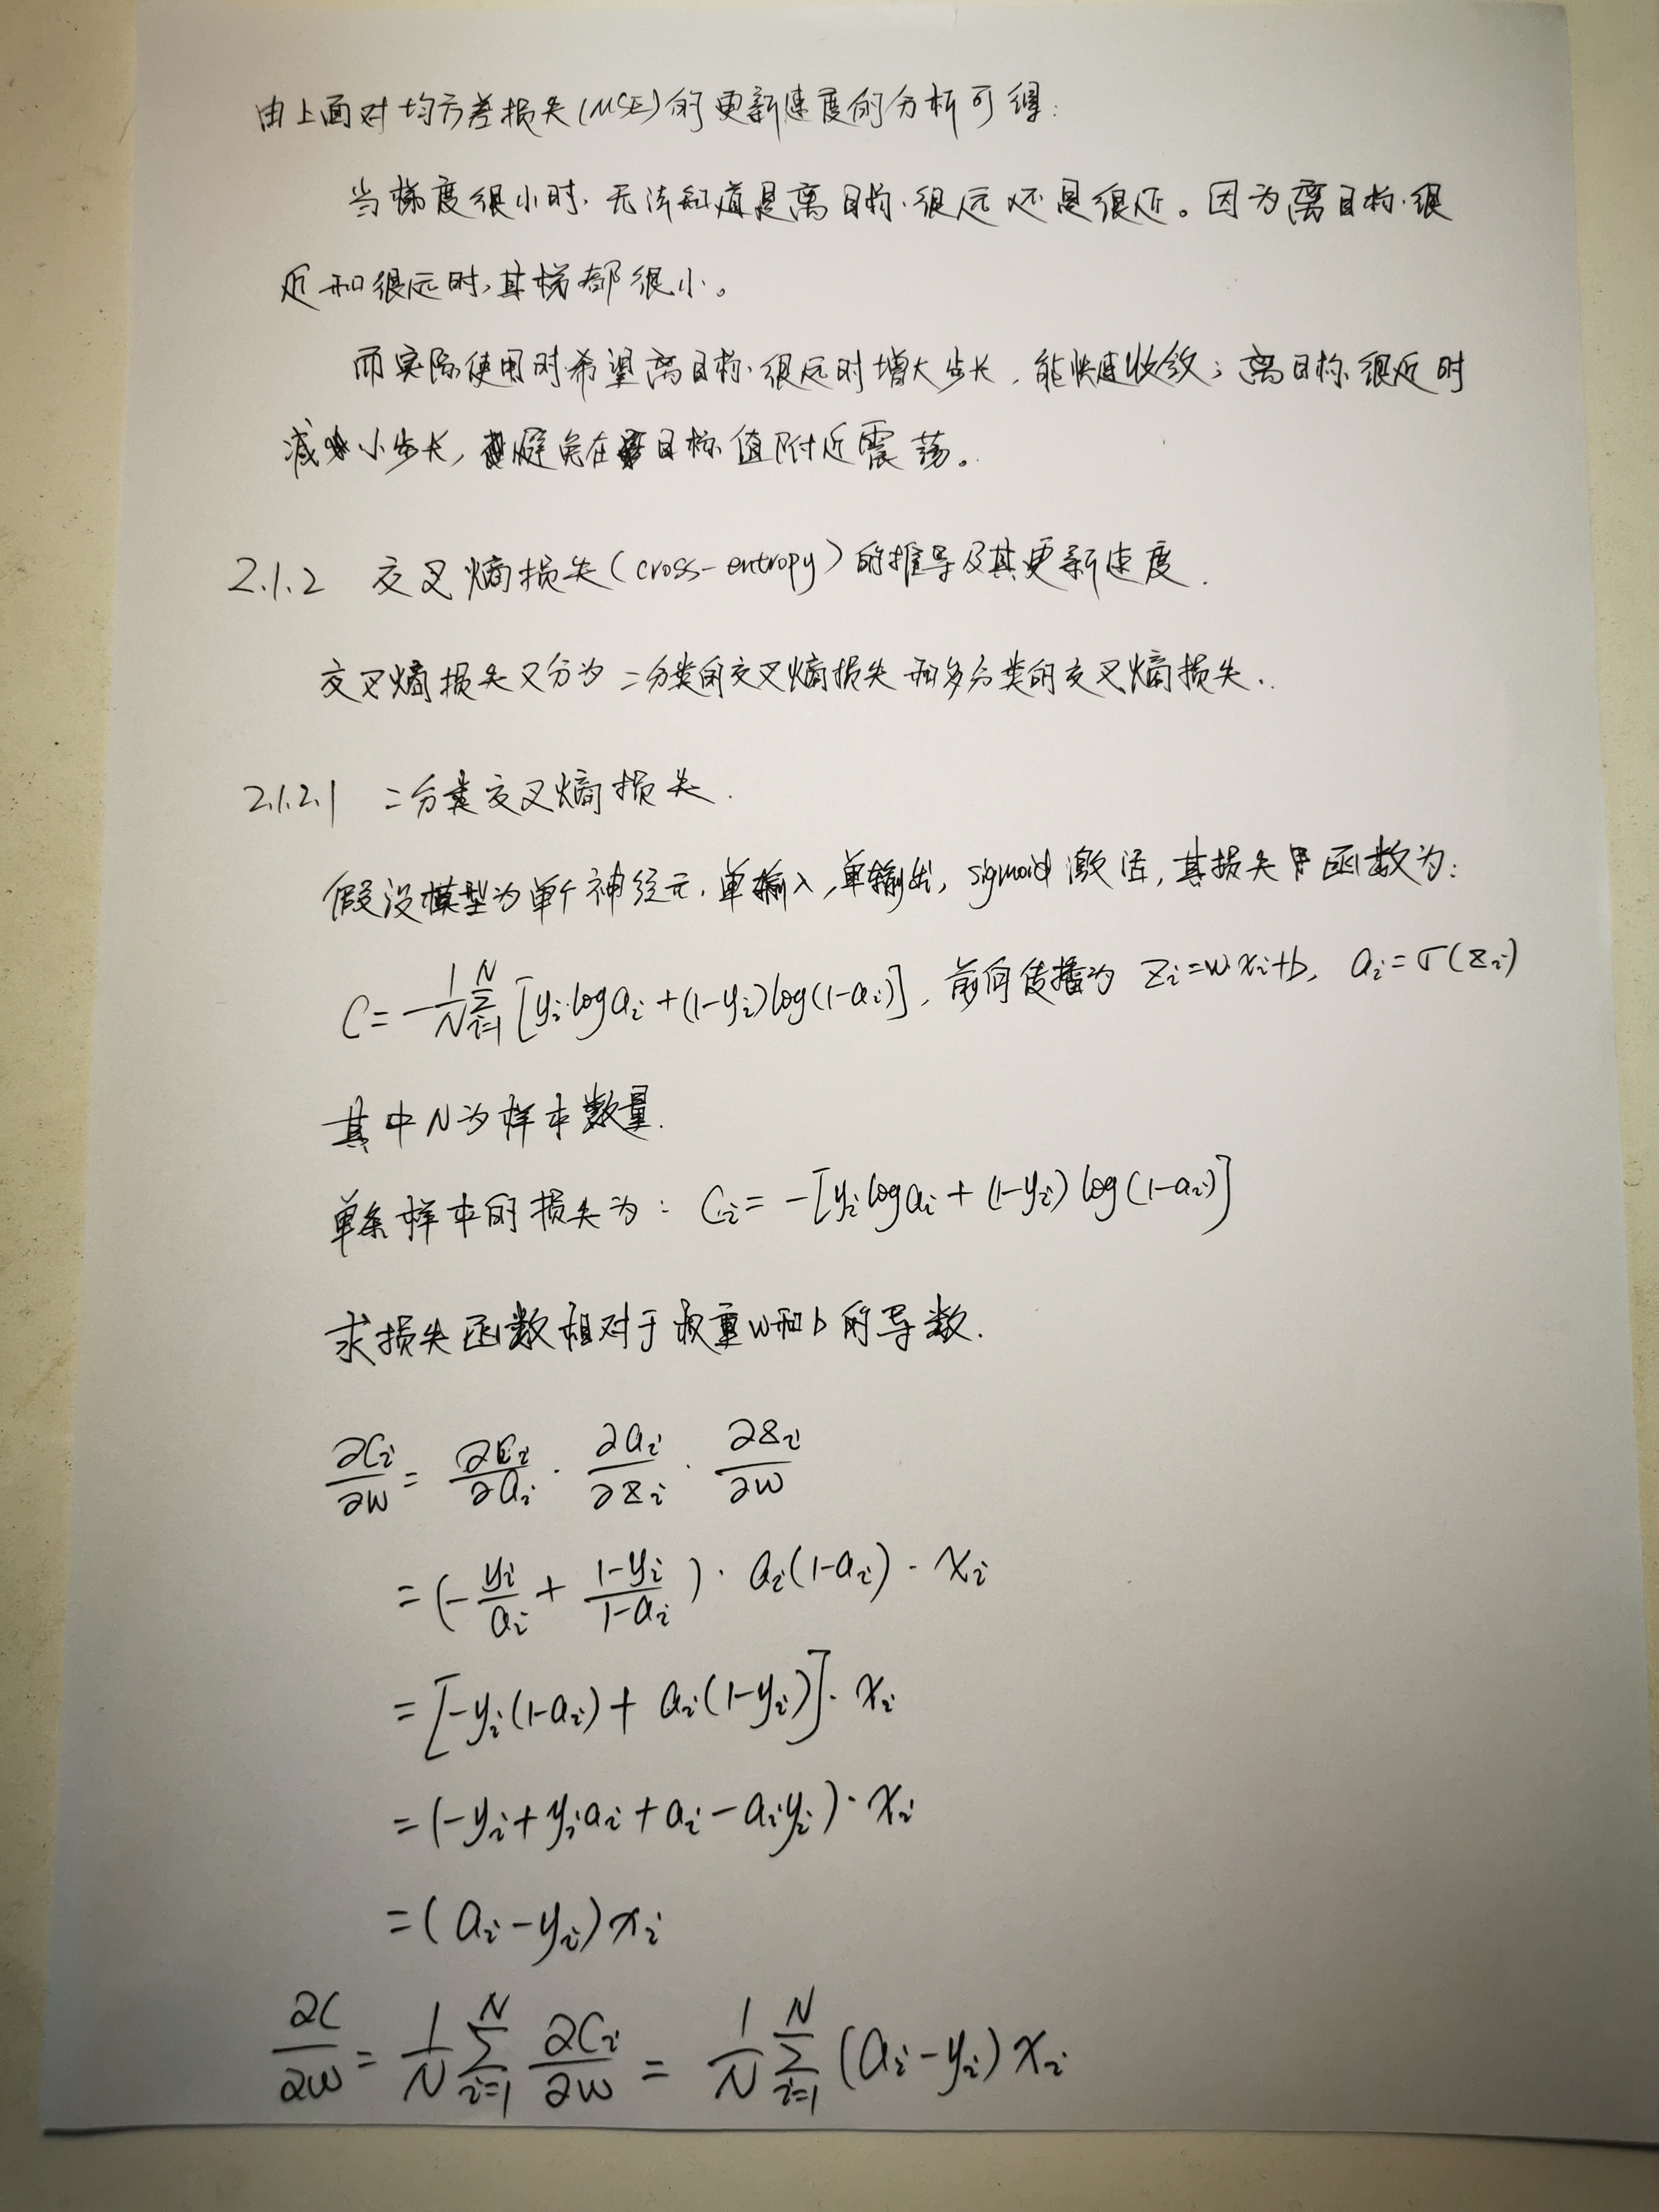 由上面对均方差损失(MSE)的更新速度的分析可得:
当梯度很小时,无法知道是离目标很远还是很近。因为离目标很
近和很远时,其梯都很小。
而实际使用时希望离目标很远时增大步长,能快速收敛;离目标很近时
减小步长,避免在目标值附近震荡。
2.1.2 交叉熵损失(cross-entropy)的推导及其更新速度.
交叉熵损失又分为二分类的交叉熵损失和多分类的交叉熵损失.
2.1.2.1 二分类交叉熵损失.
假设模型为单个神经元,单输入,单输出,sigmoid激活,其损失函数为:
C = -\frac{1}{N}\sum_{i=1}^{N}[y_i log a_i + (1-y_i) log(1-a_i)], 前向传播为 z_i = w·x_i+b, a_i = σ(z_i)
其中N为样本数量.
单条样本的损失为: C_i = -[y_i log a_i + (1-y_i) log(1-a_i)]
求损失函数相对于权重w和b的导数.
\frac{∂C_i}{∂w} = \frac{∂C_i}{∂a_i} · \frac{∂a_i}{∂z_i} · \frac{∂z_i}{∂w}
= (-\frac{y_i}{a_i} + \frac{1-y_i}{1-a_i}) · a_i(1-a_i) · x_i
= [-y_i(1-a_i) + a_i(1-y_i)] · x_i
= (-y_i + y_i a_i + a_i - a_i y_i) · x_i
= (a_i - y_i) x_i
\frac{∂C}{∂w} = \frac{1}{N}\sum_{i=1}^{N} \frac{∂C_i}{∂w} = \frac{1}{N}\sum_{i=1}^{N} (a_i - y_i) x_i